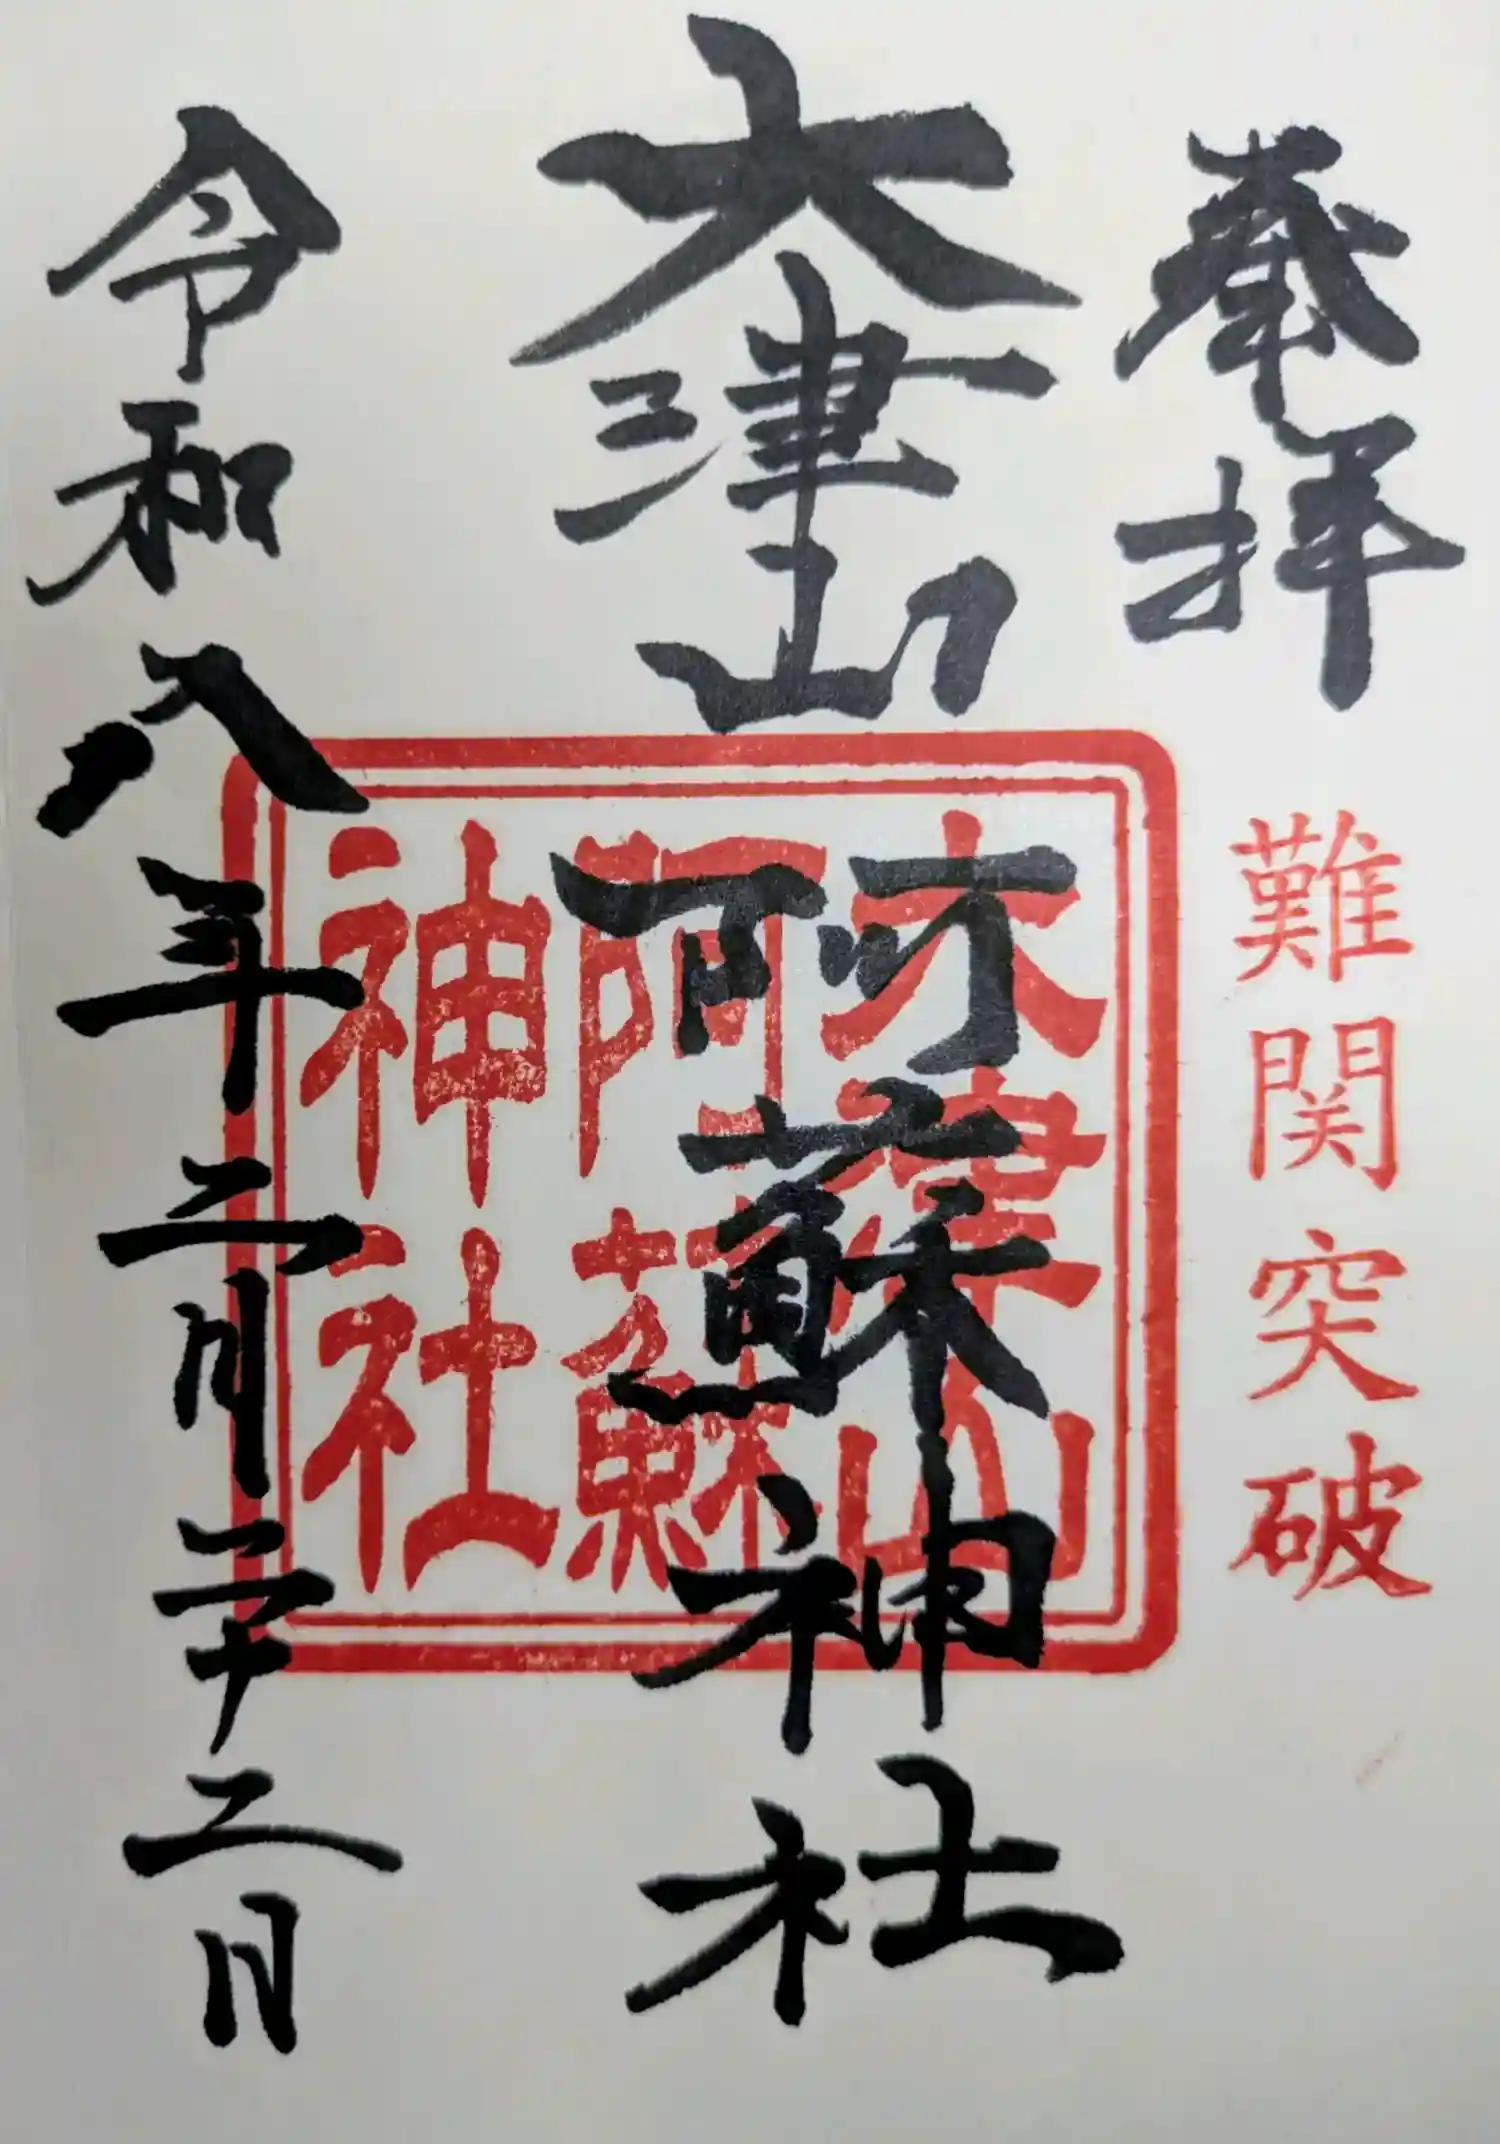 奉拝
難関突破
大津山
阿蘇神社
大津山
阿蘇
神社
令和八年二月二十二日